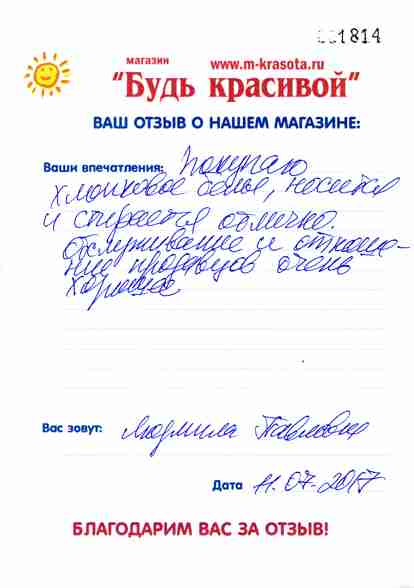 001814
магазин www.m-krasota.ru
"Будь красивой"
ВАШ ОТЗЫВ О НАШЕМ МАГАЗИНЕ:
Ваши впечатления: Покупаю
хлопковое белье, носится
и стирается отлично.
Обслуживание и отноше-
ние продавцов очень
хорошее
Вас зовут: Людмила Павловна
Дата 11.07.2017
БЛАГОДАРИМ ВАС ЗА ОТЗЫВ!